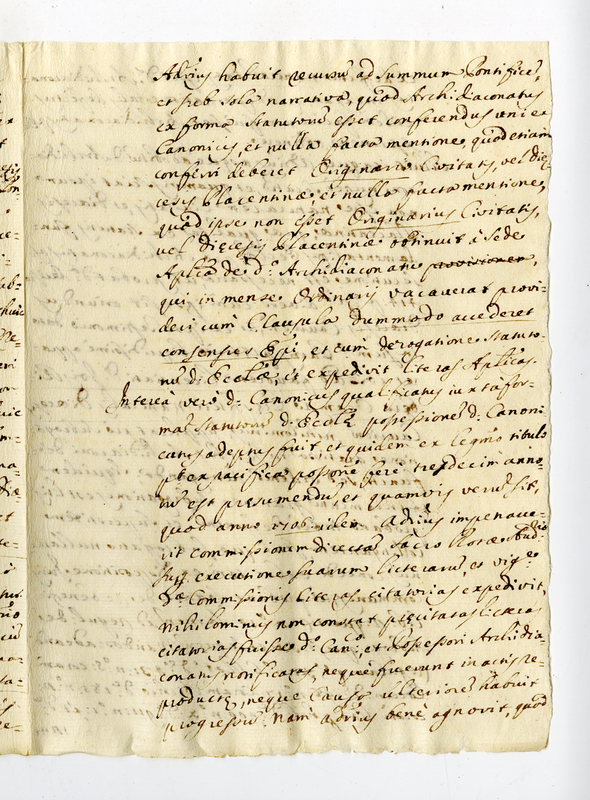 Adrius habuit recursũ ad Summum Pontificẽ,
et sub sola narrativa, quod Archidiaconatus
ex forma Statutorũ esset conferendus uni ex
Canonicis, et nulla facta mentione, quod etiam
conferri deberet Originario Civitatis, vel Diæ-
cesis Placentinæ, et nulla facta mentione,
quod ipse non esset Originarius Civitatis,
vel Diæcesis Placentinæ obtinuit à Sede
Aplica de d.º Archidiaconatu provisionem,
qui in mense Ordinarij vacaverat provi-
deri cum Clausula dummodo accederet
consensus Epi, et cum derogatione Statuto-
rũ d. Ecclæ, et expedivit literas Aplicas.
Intereà verò d. Canonicus qualificatus iuxta for-
mã Statutorũ d. Ecclæ possessionẽ d. Canoni
catus adeptus fuit, et quidem ex legmo titulo
pt ex pacifica possone ferè tredecim anno-
rũ est præsumendũ, et quamvis verũ sit,
quod anno 1706 idem Adrius impetrave-
rit commissionum directã Sacro Rotæ Aud:
Sup. executione suarum licterarũ, et vig.e
Dæ Commissionis literas citatorias expedivit,
Nihilominus non constat præcitatas licteras
citatorias fuisse d.º Can.co, et Possessori Archidia-
conatus notificatas, neque fuerunt in actis re-
productæ, neque Causa ulteriorẽ habuit
progressũ. Nam Adrius benè agnovit, quod